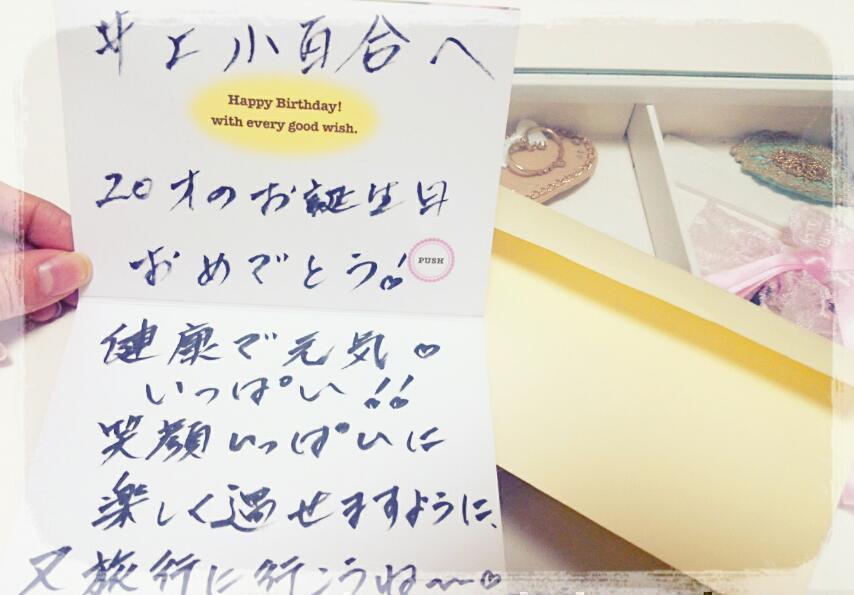 井上小百合へ
Happy Birthday!
with every good wish.
20才のお誕生日
おめでとう!
PUSH
健康で元気♡
いっぱい!!
笑顔いっぱいに
楽しく過せますように、
又旅行に行こうね〜〜♡